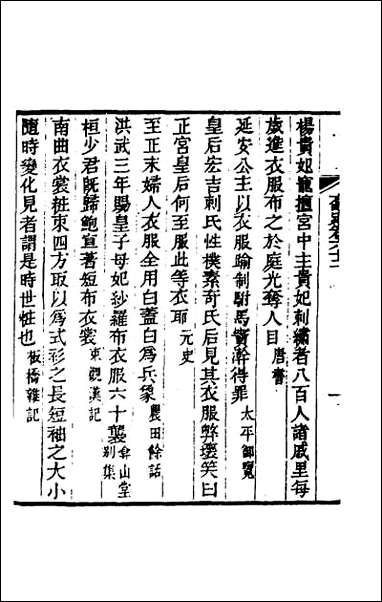 楊貴妃寵擅宮中主貴妃刺繡者八百人諸戚里每
歲進衣服布之於庭光奪人目唐書
延安公主以衣服踰制駙馬竇澣得罪太平御覽
皇后宏吉剌氏性樸素奇氏后見其衣服弊壞笑曰
正宮皇后何至服此等衣耶元史
至正末婦人衣服全用白蓋白爲兵象農田餘話
洪武三年賜皇子母妃紗羅布衣服六十襲弇山堂別集
桓少君既歸鮑宣著短布衣裳東觀漢記
南曲衣裳粧束四方取以爲式衫之長短袖之大小
隨時變化見者謂是時世粧也板橋雜記